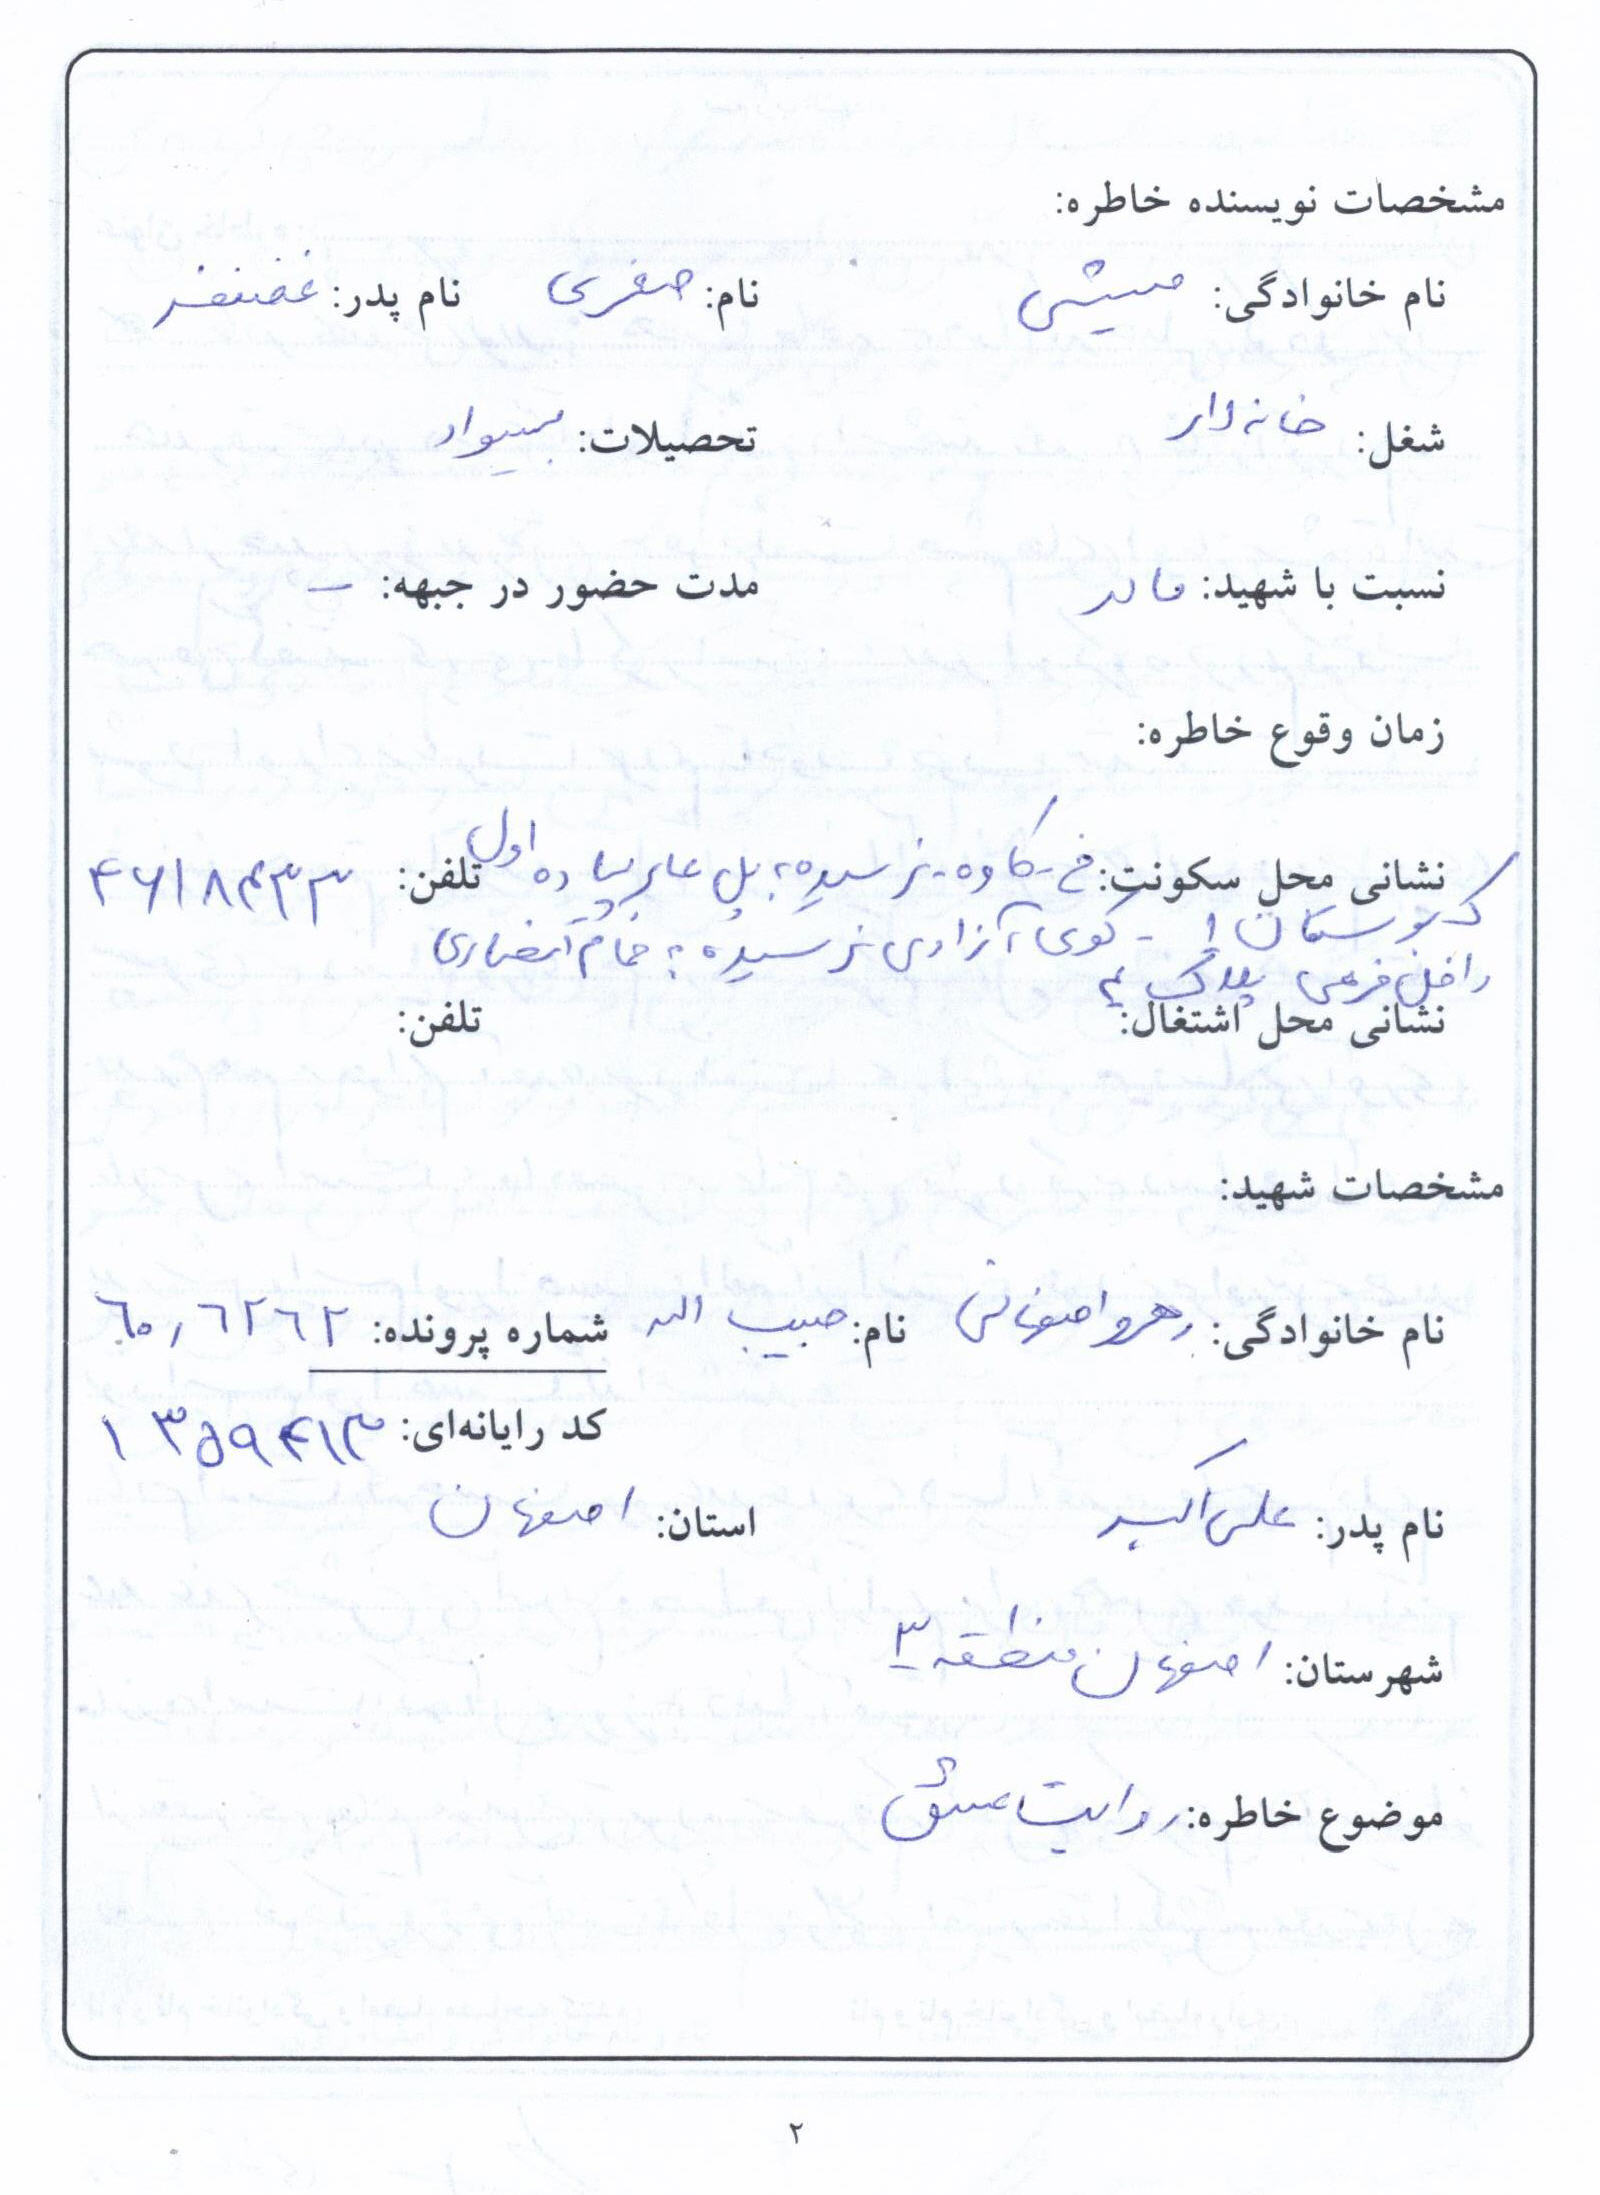 مشخصات نویسنده خاطره:
نام خانوادگی: نام: صغری نام پدر: غضنفر
شغل: خانه دار تحصیلات: بیسواد
نسبت با شهید: مادر مدت حضور در جبهه: –
زمان وقوع خاطره:
نشانی محل سکونت: خ - کاوه - نرسیده به پل عابر پیاده اول تلفن: ۴۶۱۸۴۳۳
کردستان ۱ - کوی آزادی نرسیده به حمام انصاری
داخل فرعی پلاک ۴
نشانی محل اشتغال: تلفن:
مشخصات شهید:
نام خانوادگی: رهرو اصفهانی نام: حبیب اله شماره پرونده: ۶۰۰۶۲۶۲
کد رایانه‌ای: ۱۳۵۹۴۱۳
نام پدر: علی اکبر استان: اصفهان
شهرستان: اصفهان منطقه ۳
موضوع خاطره: روایت عشق
۲